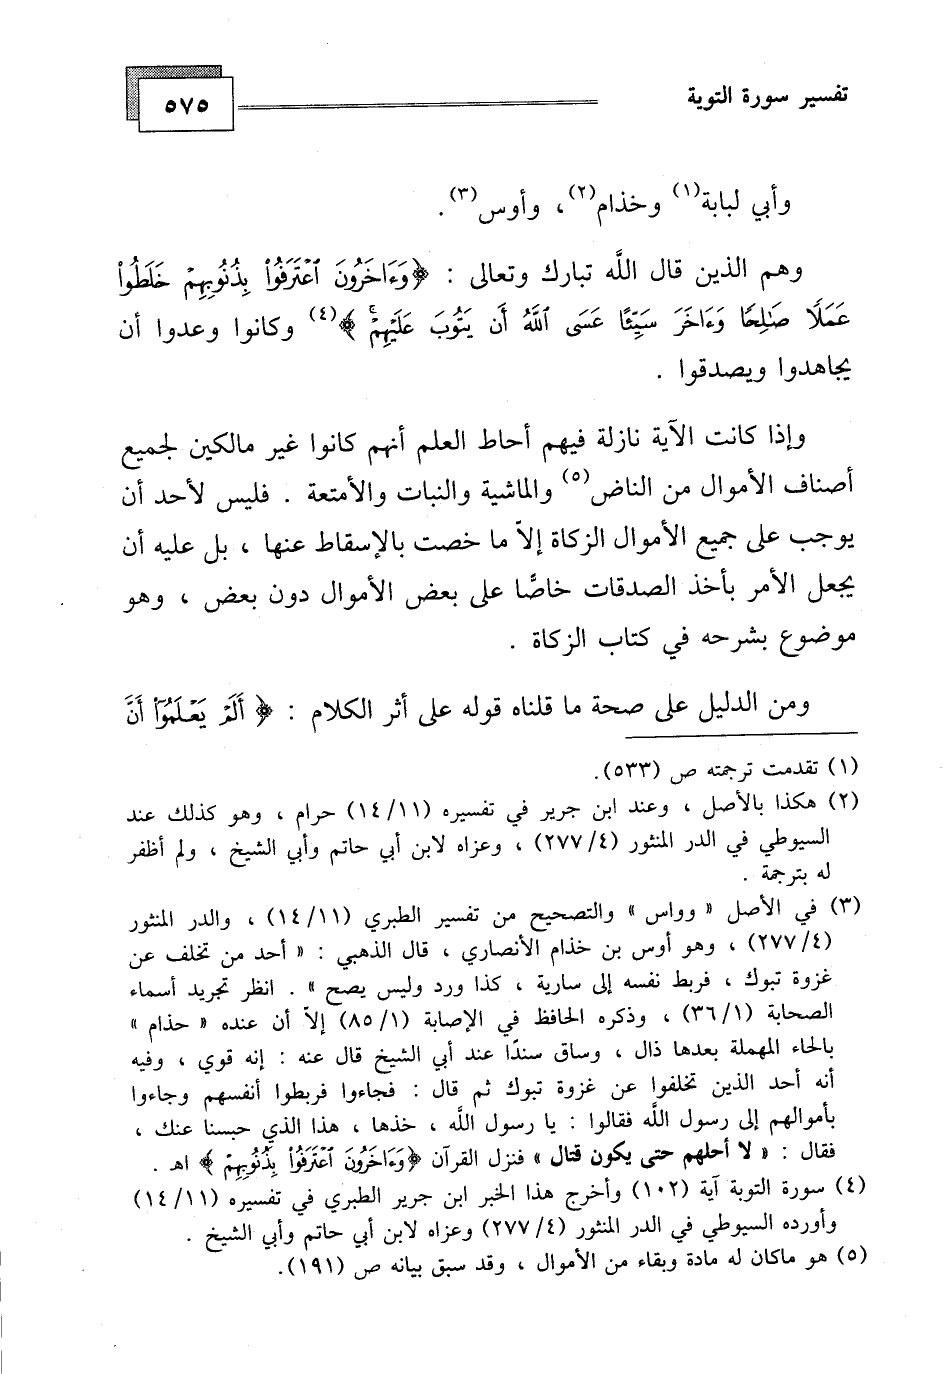 تفسير سورة التوبة
٥٧٥
وأبي لبابة(١) وخذام(٢) ، وأوس(٣) .
وهم الذين قال اللَّه تبارك وتعالى : ﴿ وَءَاخَرُونَ ٱعْتَرَفُوا۟ بِذُنُوبِهِمْ خَلَطُوا۟
عَمَلًا صَٰلِحًا وَءَاخَرَ سَيِّئًا عَسَى ٱللَّهُ أَن يَتُوبَ عَلَيْهِمْ ۚ ﴾(٤) وكانوا وعدوا أن
يجاهدوا ويصدقوا .
وإذا كانت الآية نازلة فيهم أحاط العلم أنهم كانوا غير مالكين لجميع
أصناف الأموال من الناض(٥) والماشية والنبات والأمتعة . فليس لأحد أن
يوجب على جميع الأموال الزكاة إلاّ ما خصت بالإسقاط عنها ، بل عليه أن
يجعل الأمر بأخذ الصدقات خاصًّا على بعض الأموال دون بعض ، وهو
موضوع بشرحه في كتاب الزكاة .
ومن الدليل على صحة ما قلناه قوله على أثر الكلام : ﴿ أَلَمْ يَعْلَمُوٓا۟ أَنَّ
(١) تقدمت ترجمته ص (٥٣٣).
(٢) هكذا بالأصل ، وعند ابن جرير في تفسيره (١٤/١١) حرام ، وهو كذلك عند
السيوطي في الدر المنثور (٢٧٧/٤) ، وعزاه لابن أبي حاتم وأبي الشيخ ، ولم أظفر
له بترجمة .
(٣) في الأصل « وواس » والتصحيح من تفسير الطبري (١٤/١١) ، والدر المنثور
(٢٧٧/٤) ، وهو أوس بن خذام الأنصاري ، قال الذهبي : « أحد من تخلف عن
غزوة تبوك ، فربط نفسه إلى سارية ، كذا ورد وليس يصح » . انظر تجريد أسماء
الصحابة (٣٦/١) ، وذكره الحافظ في الإصابة (٨٥/١) إلاّ أن عنده « حذام »
بالحاء المهملة بعدها ذال ، وساق سندًا عند أبي الشيخ قال عنه : إنه قوي ، وفيه
أنه أحد الذين تخلفوا عن غزوة تبوك ثم قال : فجاءوا فربطوا أنفسهم وجاءوا
بأموالهم إلى رسول اللَّه فقالوا : يا رسول اللَّه ، خذها ، هذا الذي حبسنا عنك ،
فقال : « لا أحلهم حتى يكون قتال » فنزل القرآن ﴿ وَءَاخَرُونَ ٱعْتَرَفُوا۟ بِذُنُوبِهِمْ ﴾ اهـ .
(٤) سورة التوبة آية (١٠٢) وأخرج هذا الخبر ابن جرير الطبري في تفسيره (١٤/١١)
وأورده السيوطي في الدر المنثور (٢٧٧/٤) وعزاه لابن أبي حاتم وأبي الشيخ .
(٥) هو ماكان له مادة وبقاء من الأموال ، وقد سبق بيانه ص (١٩١).